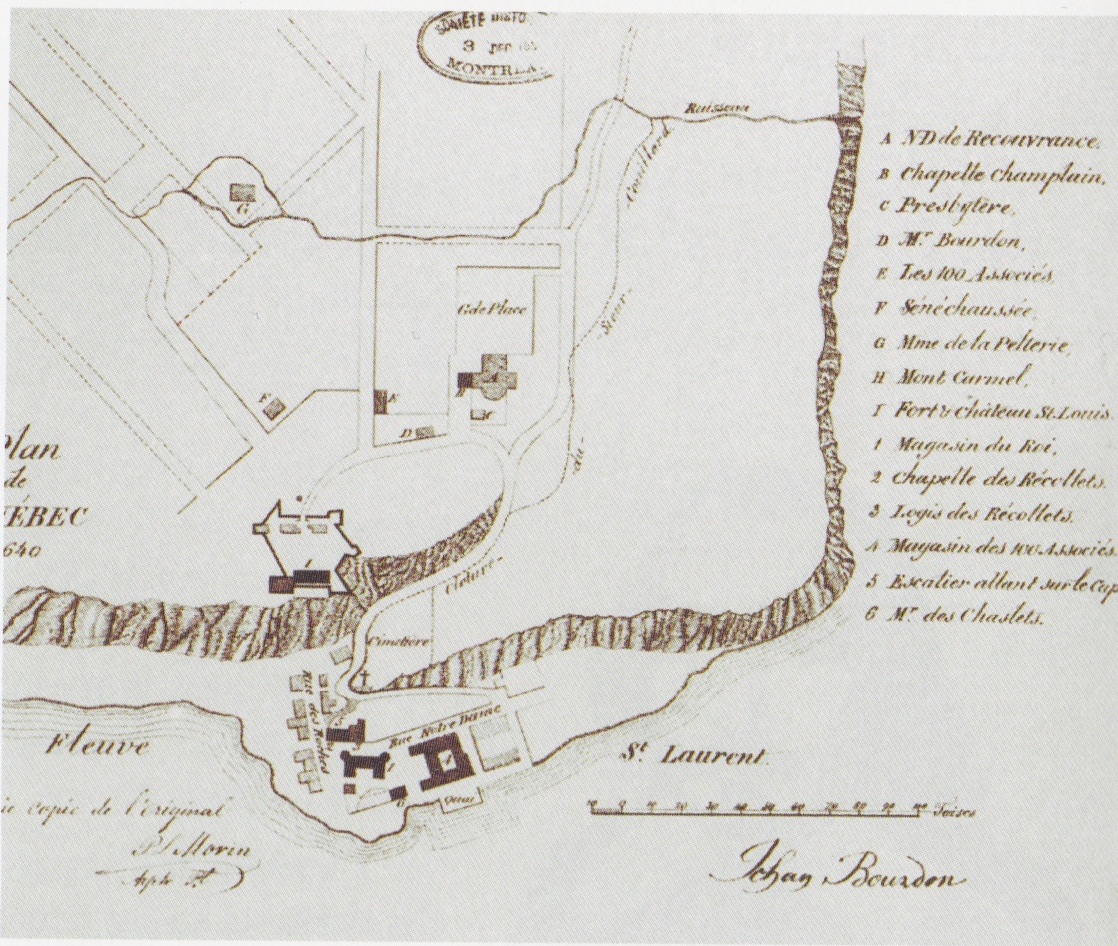 SOCIÉTÉ HISTO
MONTREA
Ruisseau
Couillard
Sieur
du
Cloture
G.de Place
A
E
D
F
G
Cimetiere
Rue Notre Dame
Rue des Roches
Quai
6
Plan
de
ÉBEC
640
Fleuve
St. Laurent.
Toises
ie copie de l'original
P.L. Morin
Jehan Bourdon
A ND de Recouvrance.
B Chapelle Champlain,
C Presbytère,
D Mr Bourdon,
E Les 100 Associés,
F Sénéchaussée,
G Mme de la Pelterie,
H Mont Carmel,
I Fort & Château St. Louis
1 Magasin du Roi,
2 Chapelle des Récollets.
3 Logis des Récollets.
4 Magasin des 100 Associés.
5 Escalier allant sur le Cap
6 Mr des Chaslets.